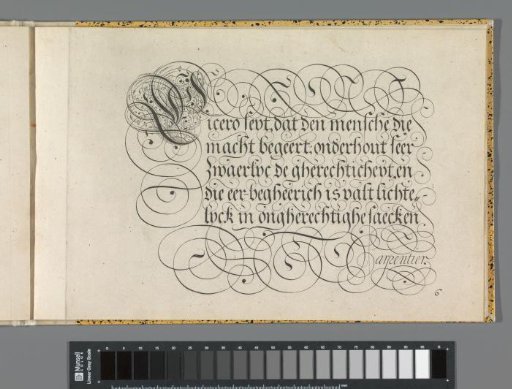 Cicero seyt, dat den mensche die
macht begeert, onderhout seer
zwaerlyc de gherechticheyt, en
die eer-begheerich is valt lichte„
lyck in ongherechtighe saecken.
Carpentier.
6